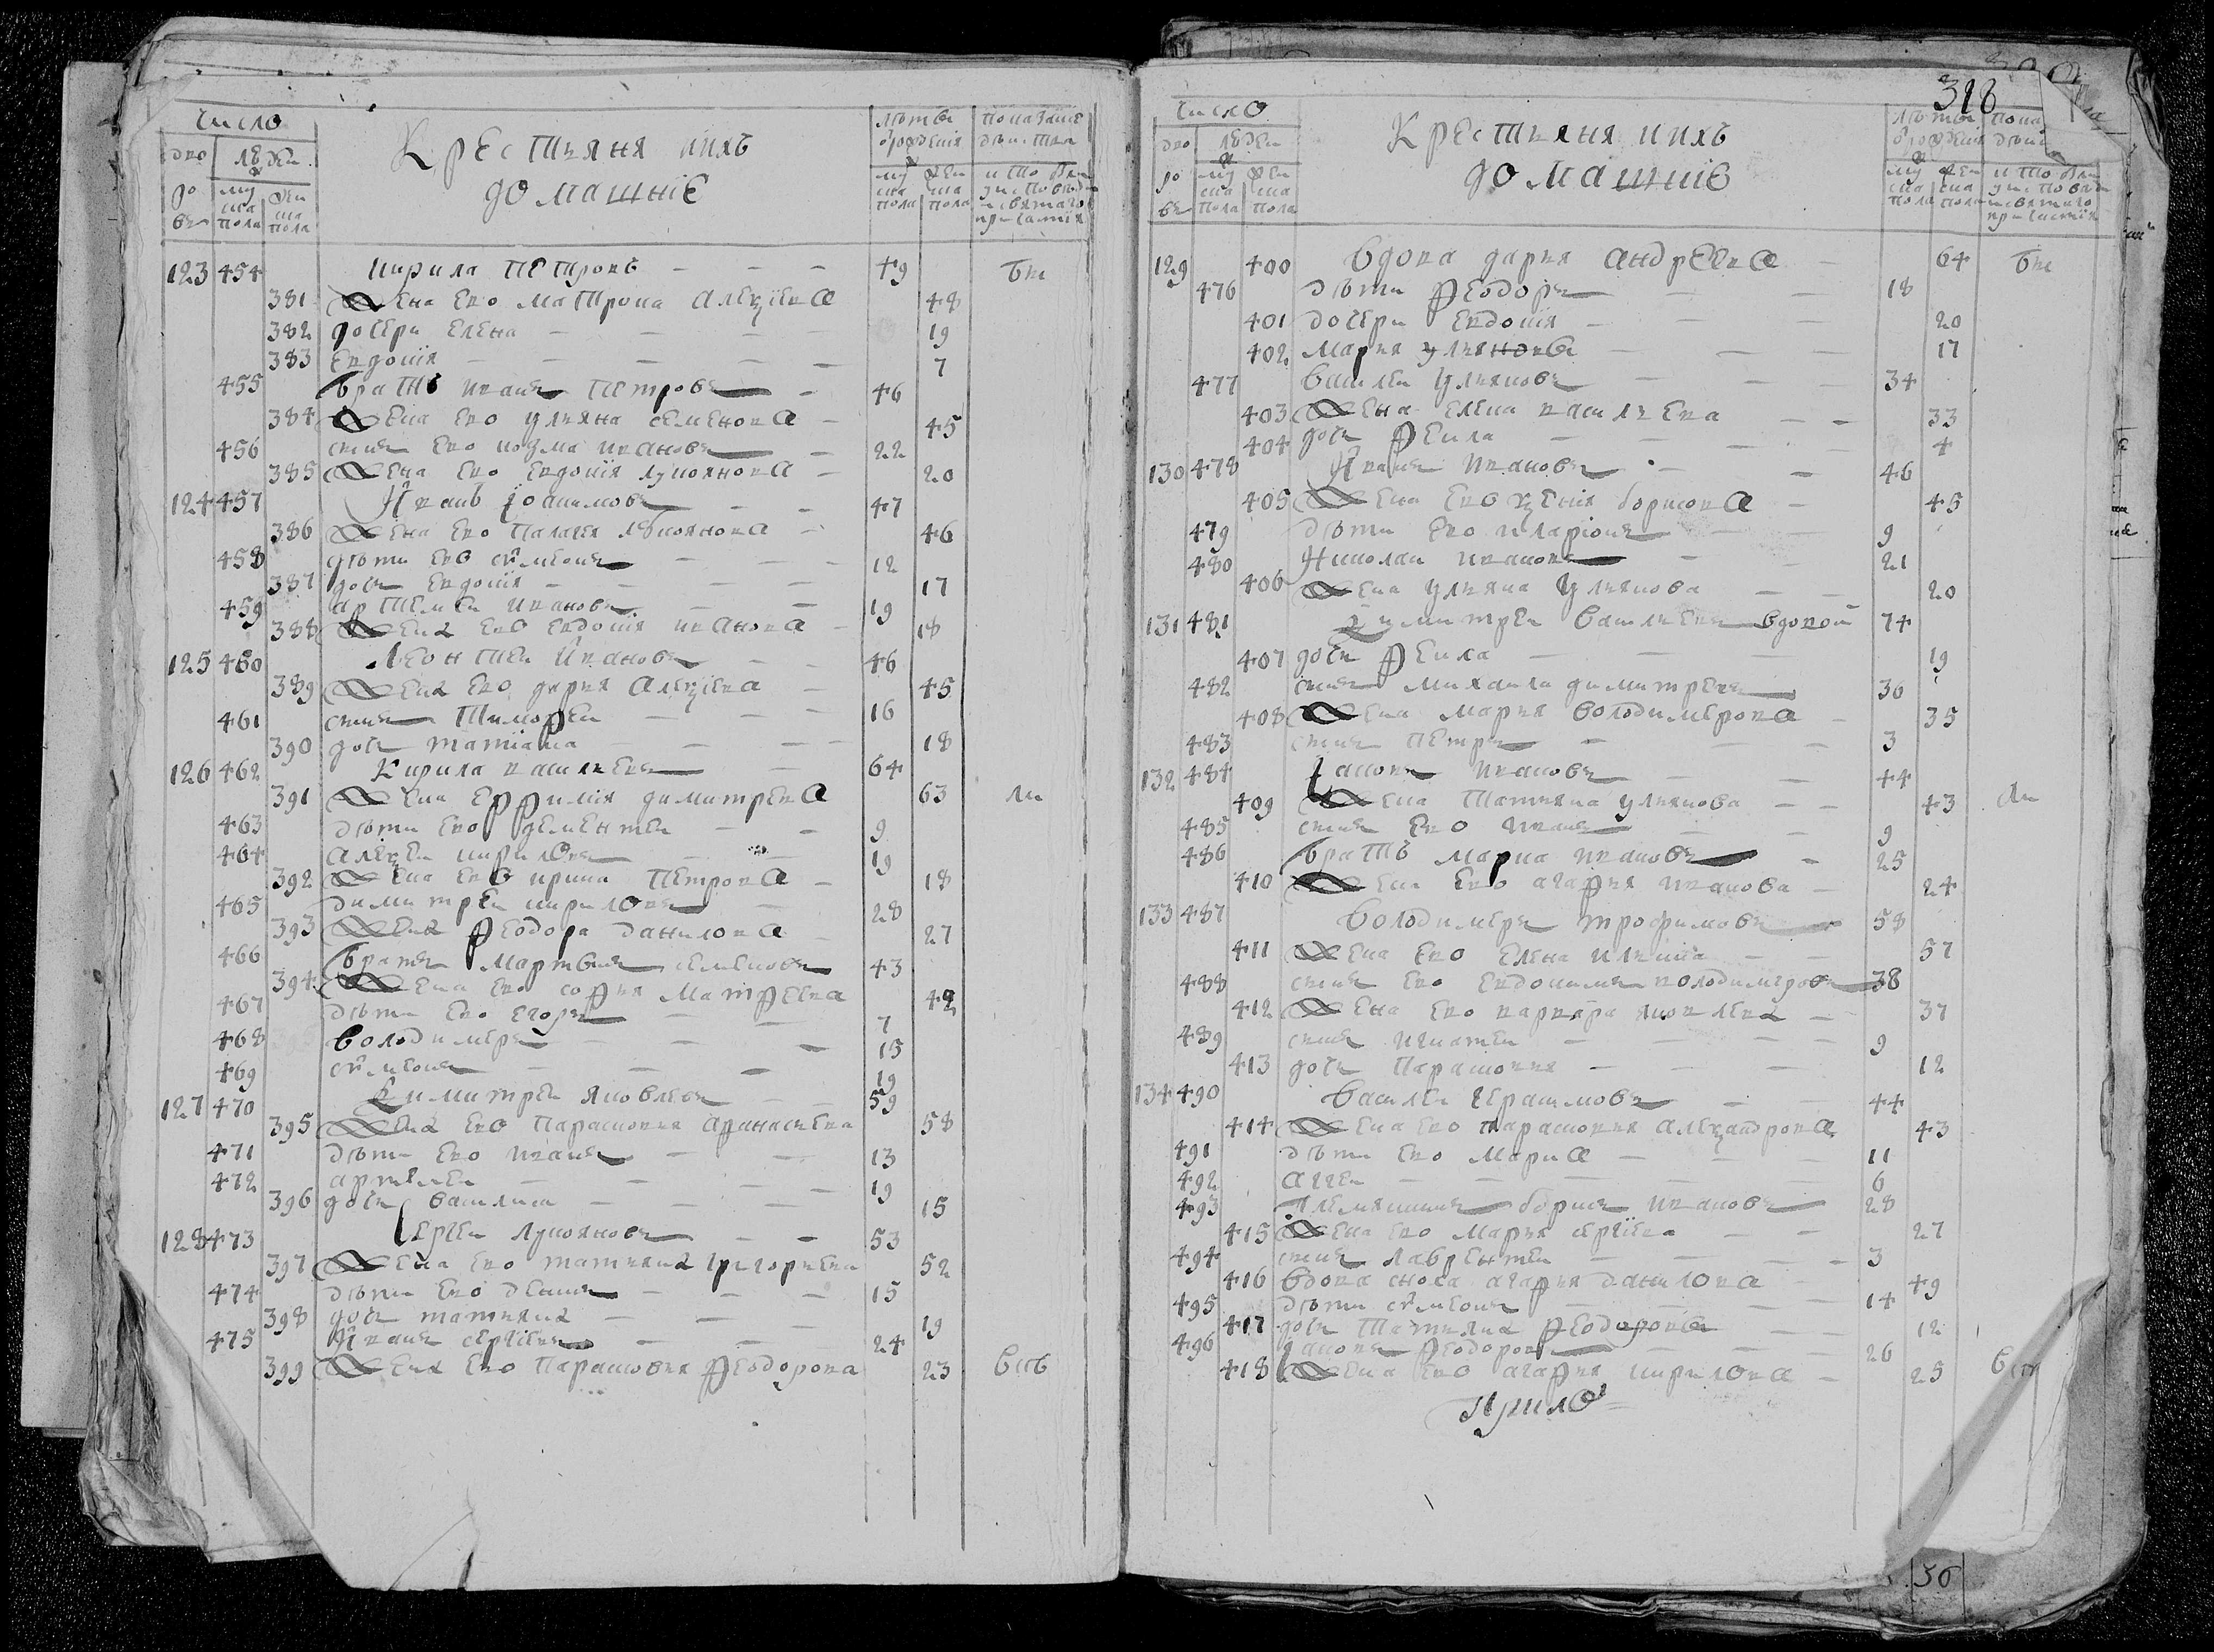 число
дво ро въ
людеи
му ска пола
жен ска пола
Крестьяня иихъ
домашнїе
лѣта ѿ рождения
му ска пола
жен ска пола
показание
123 454 Кирила Петровъ 49
381 Жена Ево Матрона Алеѯіева 48
382 дочери Елена 19
383 Евдокїя 7
455 братъ иванъ Петровъ 46
384 Жена Ево ульяна семенова 45
456 сынъ Ево козма ивановъ 22
385 Жена Ево Евдокїя лукоянова 20
124 457 Иванъ іоакимовъ 47
386 Жена Ево Палагея лукоянова 46
458 дѣти Ево сѵмеонъ 12
387 дочь Евдокїя 17
459 артемеи ивановъ 19
388 Жена Ево евдокїя иванова 18
125 460 Леонтеи Ивановъ 46
389 Жена Ево дарья Алеѯіева 45
461 сынъ Тимофеи 16
390 дочь татїана 18
126 462 Кирила васильевъ 64
391 Жена Ефимія димитрева 63
463 дѣти Ево дементеи 9
464 Алеѯеи кириловъ 19
392 Жена Ево ирина Петрова 18
465 димитреи кириловъ 28
393 Жена Феодора данилова 27
466 братъ Мартынъ семеновъ 43
394 Жена Ево софья Матфеева 42
467 дѣти Ево егоръ 7
468 володимеръ 15
469 сѵмеонъ 19
127 470 Димитреи яковлевъ 59
395 Жена Ево Парасковья Афанасьева 58
471 дѣти Ево иванъ 13
472 артемеи 19
396 дочь василиса 15
128 473 Сергеи лукояновъ 53
397 Жена Ево татьяна григорьева 52
474 дѣти Ево денисъ 15
398 дочь татьяна 19
475 Иванъ сергіевъ 24
399 Жена Ево Парасковья Феодорова 23
318
число
дво ро въ
людеи
му ска пола
жен ска пола
Крестьяня иихъ
домашнїе
лѣта ѿ рождения
му ска пола
жен ска пола
129 400 вдова дарья андреева 64
476 дѣти Феодоръ 18
401 дочери Евдокїя 20
402 Марья ульяновы 17
477 василеи ульяновъ 34
403 Жена Елена васильева 33
404 дочь Фекла 4
130 478 Иванъ ивановъ 46
405 Жена Ево ѯенія борисова 45
479 дѣти Ево иларіонъ 9
480 Николаи ивановъ 21
406 Жена ульяна ульянова 20
131 481 Димитреи васильевъ вдовои 74
407 дочь Фекла 19
482 сынъ михаила димитревъ 36
408 Жена Марья володимерова 35
483 сынъ Петръ 3
132 484 Іаковъ ивановъ 44
409 Жена Татьяна ульянова 43
485 сынъ Ево иванъ 9
486 братъ Марка ивановъ 25
410 Жена Ево агафья иванова 24
133 487 володимеръ трофимовъ 58
411 Жена Ево Елена ильина 57
488 сынъ Ево Евдокимъ володимеровъ 38
412 Жена Ево варвара яковлева 37
489 сынъ игнатеи 9
413 дочь Парасковья 12
134 490 василеи герасимовъ 44
414 Жена Ево парасковья алеѯандрова 43
491 дѣти Ево Марка 11
492 аггеи 6
493 племянникъ борисъ ивановъ 28
415 Жена Ево Марья сергїева 27
494 сынъ лаврентеи 3
416 вдова сноха агафья данилова 49
495 дѣти сѵмеонъ 14
417 дочь Татьяна Феодорова 12
496 Іаковъ Феодоровъ 26
418 Жена Ево агафья кирилова 25